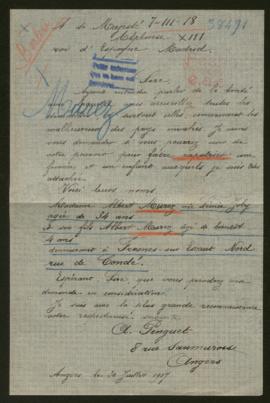 A Sa Majesté 7-III-18 38491
Alphonse XIII
roi d'Espagne Madrid.
Sire
Ayant entendu parler de la bonté
avec laquelle vous accueillez toutes les
surtout celles concernant les
malheureux des pays envahis je viens
vous demander si vous pourriez user de
votre pouvoir pour faire rapatrier une
femme et un enfant auxquels je suis très
attachée.
Voici leurs noms.
Madame Albert née
agée de 34 ans
& son fils Albert agé de bientôt
4 ans
demeurant à Fresnes sur Escaut Nord
rue de Condé.
Espérant, Sire, que vous prendrez ma
demande en considération
Je suis avec la plus grande reconnaissance
votre
A. Pinguet
8 rue Saumuroise
Angers
Angers le 30 Juillet 1917